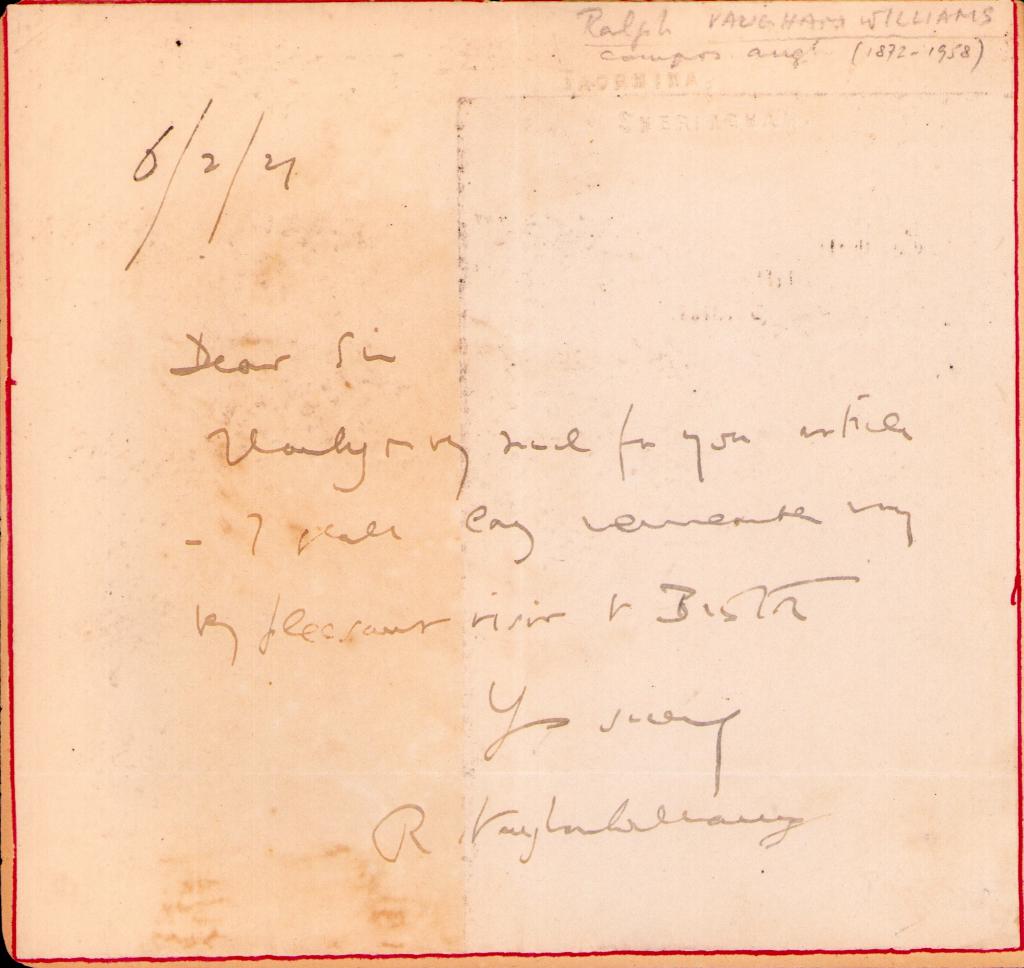 Ralph VAUGHAN WILLIAMS
compos. angl. (1872-1958)
TAORMINA
SHERINGHAM
6/2/21
Dear Sir
Thank you very much for your article
- I shall long remember my
very pleasant visit to Bristol
Yrs sincerely
R Vaughan Williams